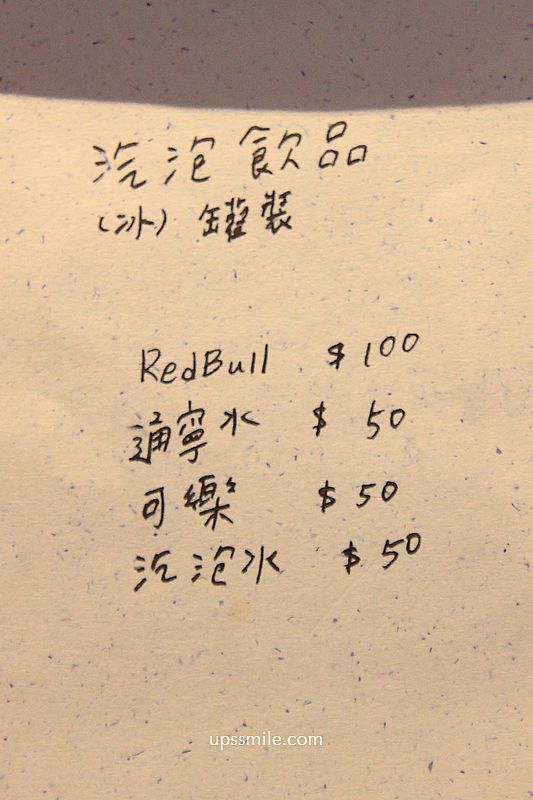 汽泡飲品
(冰) 罐裝
RedBull $100
通寧水 $50
可樂 $50
汽泡水 $50
upssmile.com